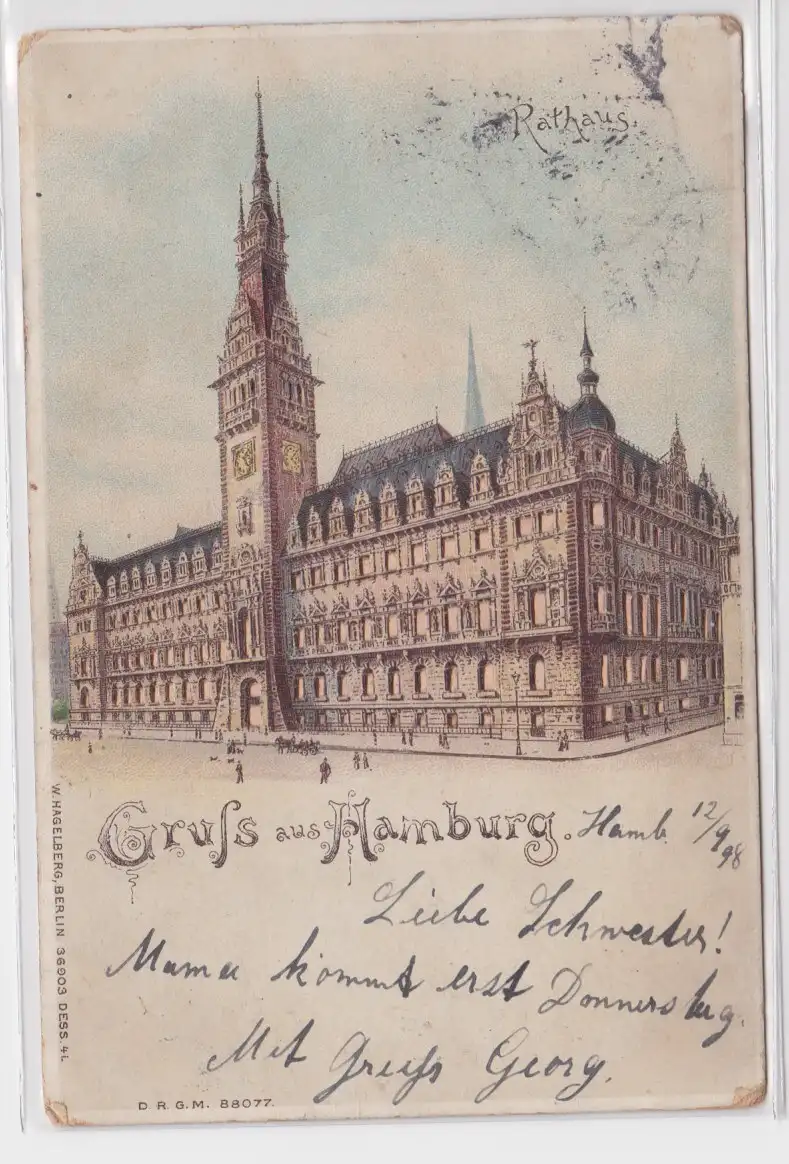 Rathaus.
Gruſs aus Hamburg.
Hamb. 12/9 98
Liebe Schwester!
Mama kommt erst Donnerstag.
Mit Gruß Georg.
W. HAGELBERG, BERLIN 36903 DESS. 4L
D. R. G. M. 88077.